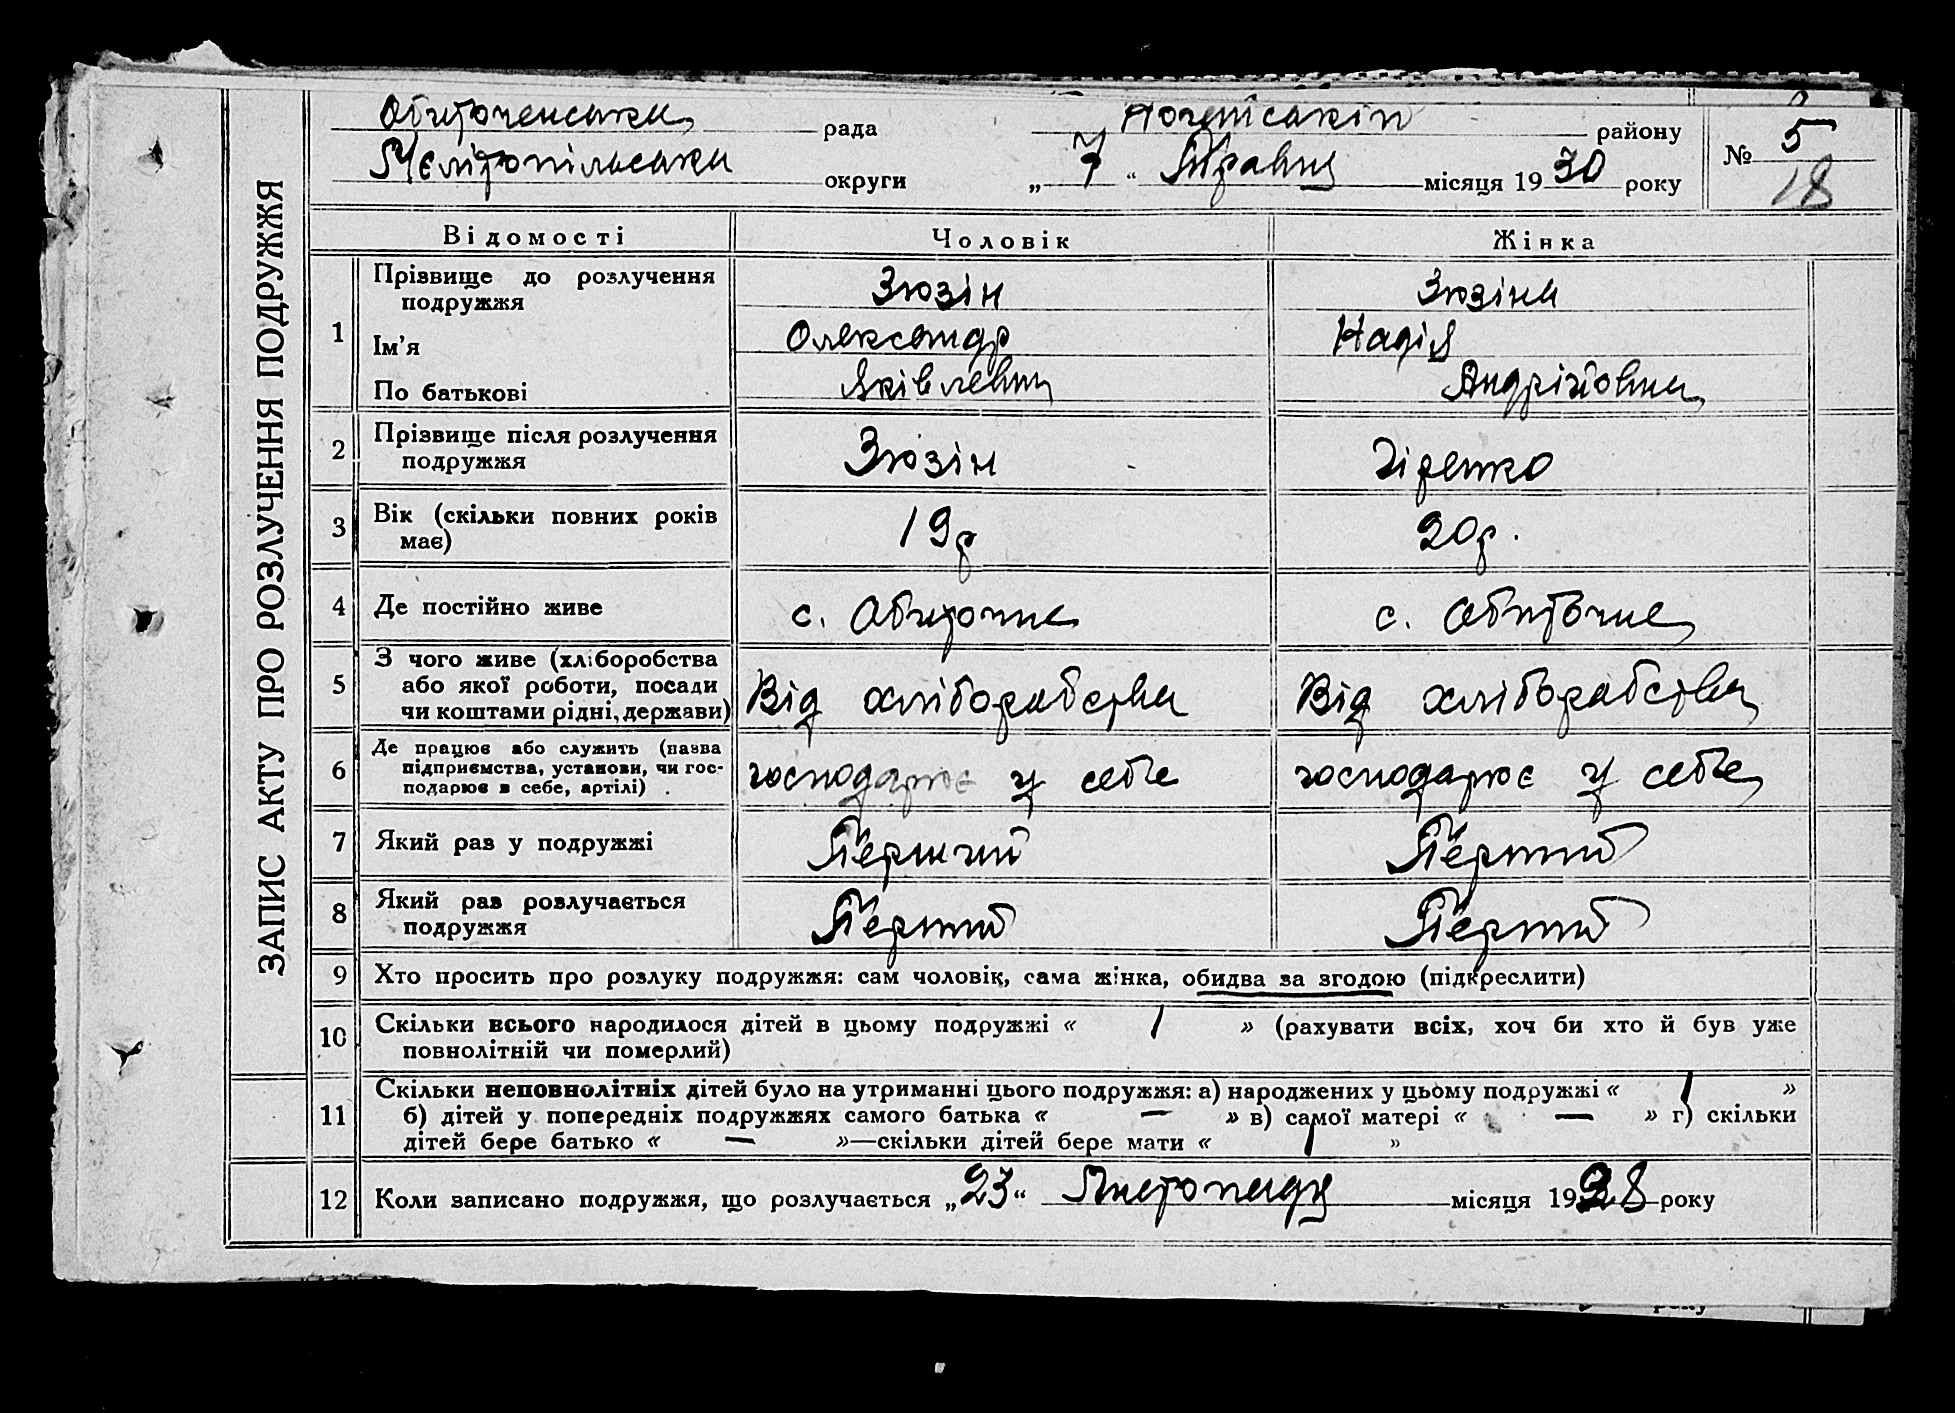 Обиточенська рада Ногайський району № 5
Мелітопільська округи „ 7 “ Травня місяця 19 30 року 18
ЗАПИС АКТУ ПРО РОЗЛУЧЕННЯ ПОДРУЖЖЯ
Відомості Чоловік Жінка
1 Прізвище до розлучення подружжя Зюзін Зюзіна
Ім'я Олександр Надія
По батькові Яківлевич Андріївна
2 Прізвище після розлучення подружжя Зюзін Гіренко
3 Вік (скільки повних років має) 19 р 20 р.
4 Де постійно живе с. Обиточне с. Обиточне
5 З чого живе (хліборобства
або якої роботи, посади
чи коштами рідні, держави) Від хліборабства Від хліборабства
6 Де працює або служить (назва
підприємства, установи, чи гос-
подарює в себе, артілі) господарює у себе господарює у себе
7 Який раз у подружжі Перший Перший
8 Який раз розлучається
подружжя Перший Перший
9 Хто просить про розлуку подружжя: сам чоловік, сама жінка, обидва за згодою (підкреслити)
10 Скільки всього народилося дітей в цьому подружжі « 1 » (рахувати всіх, хоч би хто й був уже
повнолітній чи померлий)
11 Скільки неповнолітніх дітей було на утриманні цього подружжя: а) народжених у цьому подружжі « 1 »
б) дітей у попередніх подружжях самого батька « — » в) самої матері « — » г) скільки
дітей бере батько « — »—скільки дітей бере мати « 1 »
12 Коли записано подружжя, що розлучається „ 23 “ Листопада місяця 19 28 року